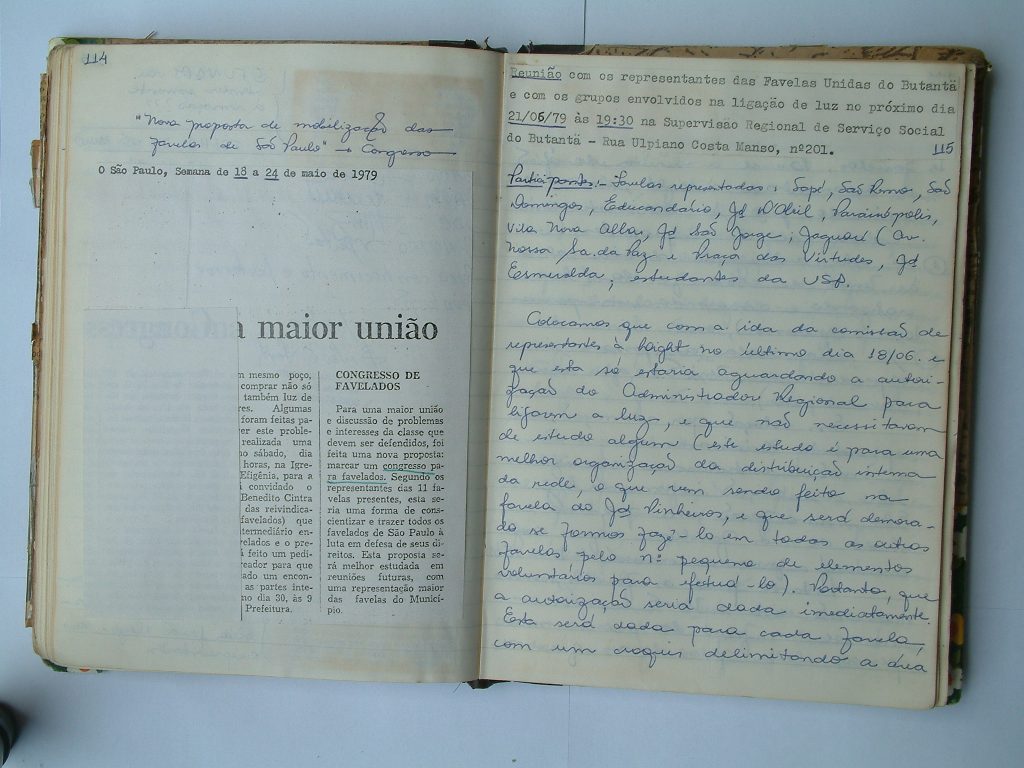 114
"Nova proposta de mobilização das
favelas de São Paulo" → Congresso
O São Paulo, Semana de 18 a 24 de maio de 1979
a maior união
m mesmo poço,
comprar não só
também luz de
res. Algumas
foram feitas pa-
er este proble-
realizada uma
no sábado, dia
horas, na Igre-
Efigênia, para a
convidado o
Benedito Cintra
das reivindica-
favelados) que
termediário en-
velados e o pre-
á feito um pedi-
reador para que
ado um encon-
as partes inte-
no dia 30, às 9
Prefeitura.
CONGRESSO DE
FAVELADOS
Para uma maior união
e discussão de problemas
e interesses da classe que
devem ser defendidos, foi
feita uma nova proposta:
marcar um congresso pa-
ra favelados. Segundo os
representantes das 11 fa-
velas presentes, esta se-
ria uma forma de cons-
cientizar e trazer todos os
favelados de São Paulo à
luta em defesa de seus di-
reitos. Esta proposta se-
rá melhor estudada em
reuniões futuras, com
uma representação maior
das favelas do Municí-
pio.
Reunião com os representantes das Favelas Unidas do Butantã
e com os grupos envolvidos na ligação de luz no próximo dia
21/06/79 às 19:30 na Supervisão Regional de Serviço Social
do Butantã - Rua Ulpiano Costa Manso, nº201.
115
Participantes:- Favelas representadas: Sapé, São Remo, São
Domingos, Educandário, Jd D'Abril, Paraisópolis,
Vila Nova Alba, Jd São Jorge, Jaguaré (Av.
Nossa Sa. da Paz e Praça das Virtudes, Jd
Esmeralda, estudantes da USP.
Colocamos que com a ida da comissão de
representantes à Light no último dia 18/06. e
que esta só estaria aguardando a autori-
zação do Administrador Regional para
ligarem a luz, e que não necessitavam
de estudo algum (este estudo é para uma
melhor organização da distribuição interna
da rede, o que vem sendo feito na
favela do Jd Pinheiros, e que será demora-
do se formos fazê-lo em todas as outras
favelas pelo nº pequeno de elementos
voluntários para efetuá-lo). Portanto, que
a autorização seria dada imediatamente.
Esta será dada para cada favela,
com um croquis delimitando a área